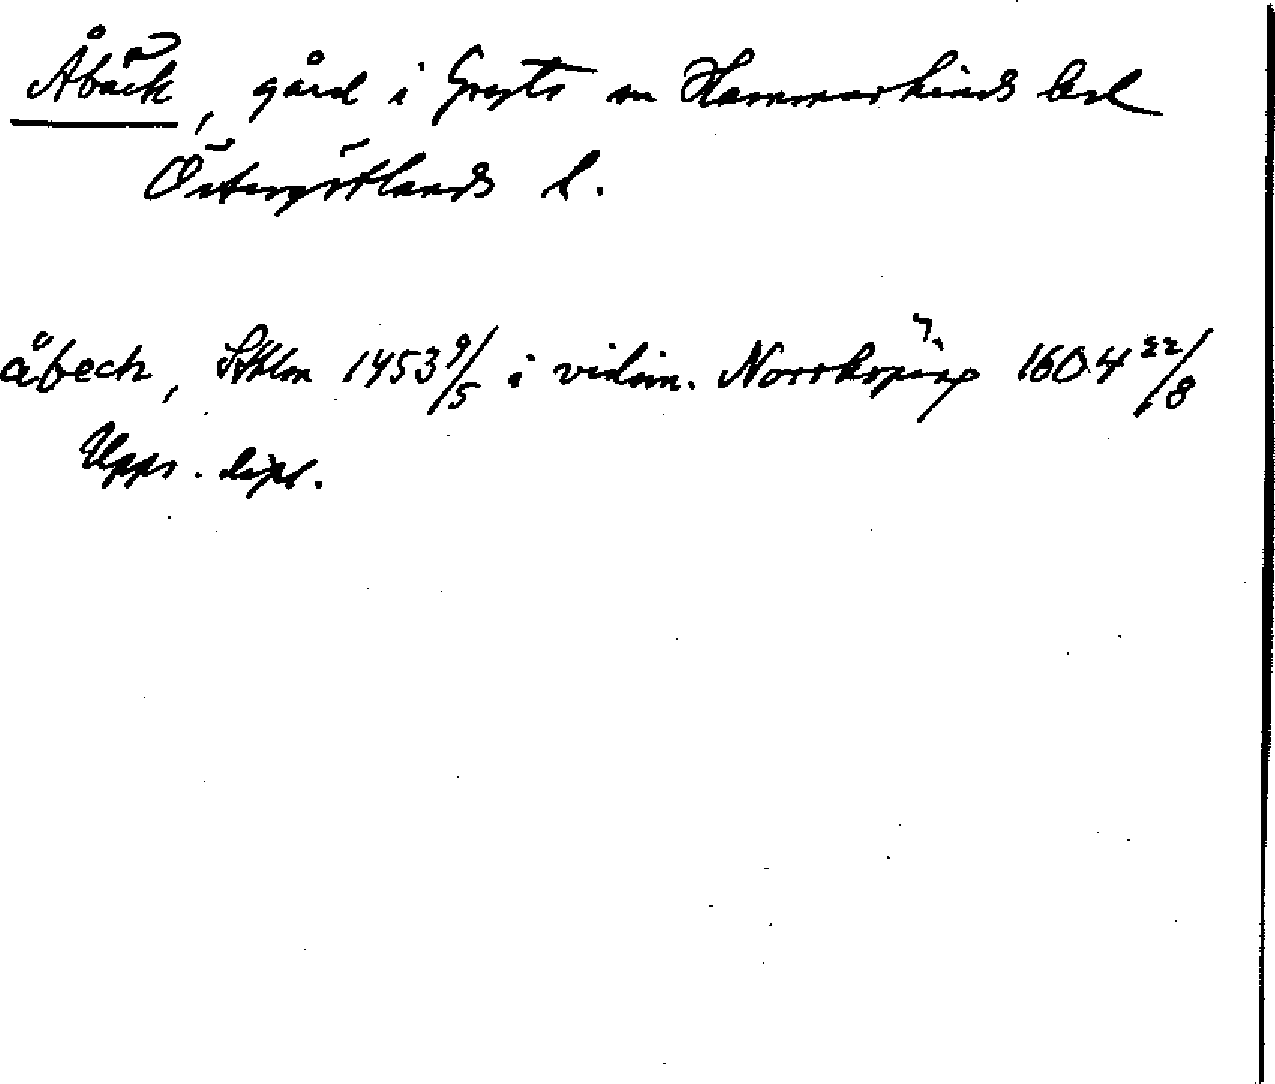 Åbäck, gård i Gryts sn Hammarkinds hd
Östergötlands l.
åbech, Sthlm 1453 9/5 i vidim. Norrköping 1604 22/8
Upps. dipl.